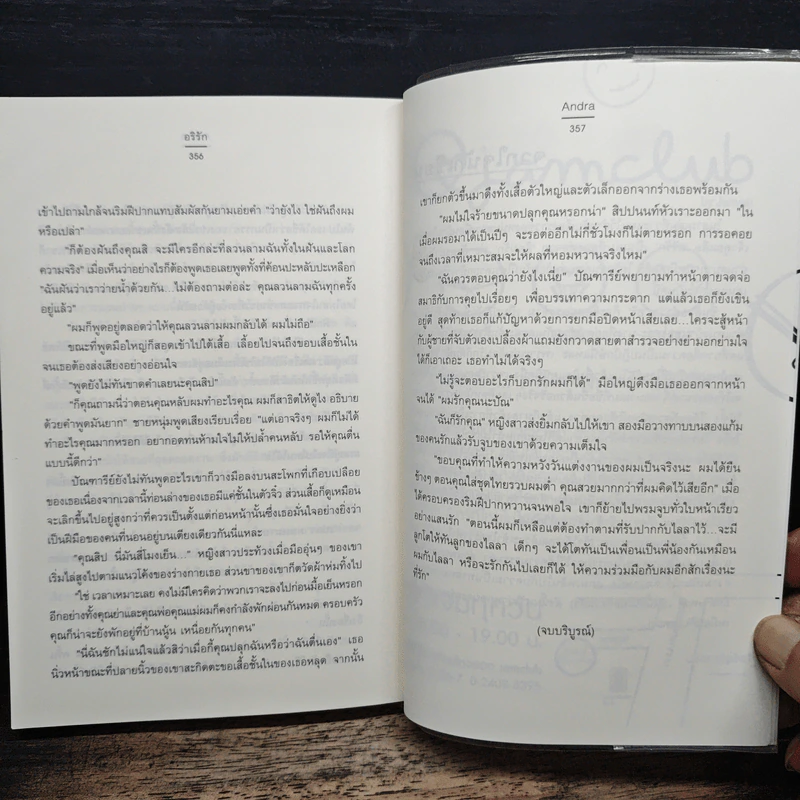 อริรัก
356
เข้าไปถามใกล้จนริมฝีปากแทบสัมผัสกันยามเอ่ยคำ "ว่ายังไง ใช่ฝันถึงผม
หรือเปล่า"
"ก็ต้องฝันถึงคุณสิ จะมีใครอีกล่ะที่ลวนลามฉันทั้งในฝันและโลก
ความจริง" เมื่อเห็นว่าอย่างไรก็ต้องพูดเธอเลยพูดทั้งที่ค้อนปะหลับปะเหลือก
"ฉันฝันว่าเราว่ายน้ำด้วยกัน...ไม่ต้องถามต่อล่ะ คุณลวนลามฉันทุกครั้ง
อยู่แล้ว"
"ผมก็พูดอยู่ตลอดว่าให้คุณลวนลามผมกลับได้ ผมไม่ถือ"
ขณะที่พูดมือใหญ่ก็สอดเข้าไปใต้เสื้อ เลื้อยไปจนถึงขอบเสื้อชั้นใน
จนเธอต้องส่งเสียงอย่างอ่อนใจ
"พูดยังไม่ทันขาดคำเลยนะคุณสิป"
"ก็คุณถามนี่ว่าตอนคุณหลับผมทำอะไรคุณ ผมก็สาธิตให้ดูไง อธิบาย
ด้วยคำพูดมันยาก" ชายหนุ่มพูดเสียงเรียบเรื่อย "แต่เอาจริงๆ ผมก็ไม่ได้
ทำอะไรคุณมากหรอก อยากอดทนห้ามใจไม่ให้ปล้ำคนหลับ รอให้คุณตื่น
แบบนี้ดีกว่า"
บัณฑารีย์ยังไม่ทันพูดอะไรเขาก็วางมือลงบนสะโพกที่เกือบเปลือย
ของเธอเนื่องจากเวลานี้ท่อนล่างของเธอมีแค่ชั้นในตัวจิ๋ว ส่วนเสื้อก็ดูเหมือน
จะเลิกขึ้นไปอยู่สูงกว่าที่ควรเป็นตั้งแต่ก่อนหน้านั้นซึ่งเธอมั่นใจอย่างยิ่งว่า
เป็นฝีมือของคนที่นอนอยู่บนเตียงเดียวกันนี่แหละ
"คุณสิป นี่มันสี่โมงเย็น..." หญิงสาวประท้วงเมื่อมืออุ่นๆ ของเขา
เริ่มไล่สูงไปตามแนวโค้งของร่างกายเธอ ส่วนขาของเขาก็ตวัดผ้าห่มทิ้งไป
"ใช่ เวลาเหมาะเลย คงไม่มีใครคิดว่าพวกเราจะลงไปก่อนมื้อเย็นหรอก
อีกอย่างทั้งคุณย่าและคุณพ่อคุณแม่ผมก็คงกำลังพักผ่อนกันหมด ครอบครัว
คุณก็น่าจะยังพักอยู่ที่บ้านนู้น เหนื่อยกันทุกคน"
"นี่ฉันชักไม่แน่ใจแล้วสิว่าเมื่อกี้คุณปลุกฉันหรือว่าฉันตื่นเอง" เธอ
นิ่วหน้าขณะที่ปลายนิ้วของเขาสะกิดตะขอเสื้อชั้นในของเธอหลุด จากนั้น
Andra
357
เขาก็ยกตัวขึ้นมาดึงทั้งเสื้อตัวใหญ่และตัวเล็กออกจากร่างเธอพร้อมกัน
"ผมไม่ใจร้ายขนาดปลุกคุณหรอกน่า" สิปปนนท์หัวเราะออกมา "ใน
เมื่อผมรอมาได้เป็นปีๆ จะรอต่ออีกไม่กี่ชั่วโมงก็ไม่ตายหรอก การรอคอย
จนถึงเวลาที่เหมาะสมจะให้ผลที่หอมหวานจริงไหม"
"ฉันควรตอบคุณว่ายังไงเนี่ย" บัณฑารีย์พยายามทำหน้าตายจดจ่อ
สมาธิกับการคุยไปเรื่อยๆ เพื่อบรรเทาความกระดาก แต่แล้วเธอก็ยังเขิน
อยู่ดี สุดท้ายเธอก็แก้ปัญหาด้วยการยกมือปิดหน้าเสียเลย...ใครจะสู้หน้า
กับผู้ชายที่จับตัวเองเปลื้องผ้าแถมยังกวาดสายตาสำรวจอย่างย่ามอกย่ามใจ
ได้ก็เอาเถอะ เธอทำไม่ได้จริงๆ
"ไม่รู้จะตอบอะไรก็บอกรักผมก็ได้" มือใหญ่ดึงมือเธอออกจากหน้า
จนได้ "ผมรักคุณนะปัณ"
"ฉันก็รักคุณ" หญิงสาวส่งยิ้มกลับไปให้เขา สองมือวางทาบบนสองแก้ม
ของคนรักแล้วรับจูบของเขาด้วยความเต็มใจ
"ขอบคุณที่ทำให้ความหวังวันแต่งงานของผมเป็นจริงนะ ผมได้ยืน
ข้างๆ ตอนคุณใส่ชุดไทยรวบผมต่ำ คุณสวยมากกว่าที่ผมคิดไว้เสียอีก" เมื่อ
ได้ครอบครองริมฝีปากหวานจนพอใจ เขาก็ย้ายไปพรมจูบทั่วใบหน้าเรียว
อย่างแสนรัก "ตอนนี้ผมก็เหลือแค่ต้องทำตามที่รับปากกับไลลาไว้...จะมี
ลูกโตให้ทันลูกของไลลา เด็กๆ จะได้โตทันเป็นเพื่อนเป็นพี่น้องกันเหมือน
ผมกับไลลา หรือจะรักกันไปเลยก็ได้ ให้ความร่วมมือกับผมอีกสักเรื่องนะ
ที่รัก"
(จบบริบูรณ์)